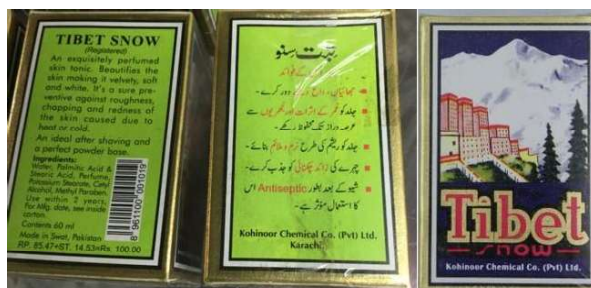 TIBET SNOW
(Registered)
An exquisitely perfumed
skin tonic. Beautifies the
skin making it velvety, soft
and white. It's a sure pre-
ventive against roughness,
chapping and redness of
the skin caused due to
heat or cold.
An ideal after shaving and
a perfect powder base.
Ingredients:
Water, Palmitic Acid &
Stearic Acid, Perfume,
Potassium Stearate, Cetyl
Alcohol, Methyl Paraben.
Use within 2 years.
For Mfg. date, see inside
carton.
Contents 60 ml
Made in Swat, Pakistan
RP. 85.47+ST. 14.53=Rs. 100.00
8 961100 001019
تبت سنو
کے فوائد
دور کرے۔
جلد کو کے اثرات اور سے
عرصہ دراز تک محفوظ رکھے۔
جلد کو ریشم کی طرح نرم و ملائم بنائے۔
چہرے کی زائد چکنائی کو جذب کرے۔
شیو کے بعد بطور Antiseptic اس
کا استعمال مؤثر ہے۔
Kohinoor Chemical Co. (Pvt) Ltd.
Karachi
Tibet
snow
Kohinoor Chemical Co. (Pvt) Ltd.